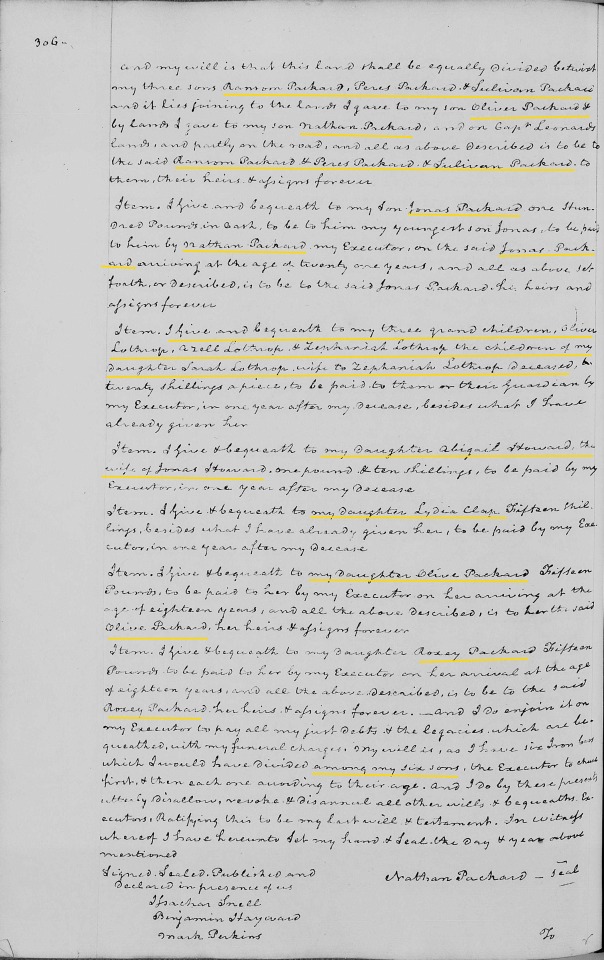 306-
and my will is that this land shall be equally Divided betwixt
my three sons Ransom Packard, Peres Packard & Sulivan Packard
and it lies joining to the lands I gave to my son Oliver Packard &
by lands I gave to my son Nathan Packard, and on Capt Leonards
lands, and partly on the road, and all as above described is to be to
the said Ransom Packard & Peres Packard & Sulivan Packard to
them, their heirs & assigns forever
Item. I Give and bequeath to my Son Jonas Packard one Hun-
dred Pounds in Cash, to be to him my youngest son Jonas, to be paid
to him by Nathan Packard my Executor, on the said Jonas Pack-
ard arriving at the age of twenty one years, and all as above set
forth, or described, is to be to the said Jonas Packard his heirs and
assigns forever
Item. I Give and bequeath to my three grand children, Oliver
Lothrop, Azell Lothrop & Zephaniah Lothrop the children of my
Daughter Sarah Lothrop, wife to Zephaniah Lothrop Deceased,
twenty shillings a piece, to be paid to them or their Guardian by
my Executor, in one year after my Decease, besides what I have
already given her
Item. I Give & bequeath to my Daughter Abigail Howard, the
wife of Jonas Howard, one pound & ten shillings, to be paid by my
Executor, in one year after my Decease
Item. I Give & bequeath to my Daughter Lydia Clap Fifteen Shil-
lings, besides what I have already given her, to be paid by my Exe-
cutor, in one year after my Decease
Item. I Give & bequeath to my Daughter Olive Packard Fifteen
Pounds, to be paid to her by my Executor on her arriving at the
age of eighteen years, and all the above described, is to her the said
Olive Packard, her heirs & assigns forever
Item. I Give & bequeath to my Daughter Roxey Packard Fifteen
Pounds to be paid to her by my Executor on her arrival at the age
of eighteen years, and all the above described, is to be to the said
Roxey Packard her heirs & assigns forever. — And I do enjoin it on
my Executor to pay all my just Debts & the legacies which are be-
queathed, with my funeral charges. My will is, as I have six Iron
which I would have divided among my six sons, the Executor to chuse
first, & then each one according to their age. And I Do by these presents
utterly Disallow, revoke & disannul all other wills & bequeaths, Ex-
ecutors, Ratifying this to be my last will & testament. In witness
whereof I have hereunto Set my hand & Seal the Day & year above
mentioned
Signed. Sealed. Published and Nathan Packard — Seal
Declared in presence of us
Issachar Snell
Benjamin Hayward
Mark Perkins
To